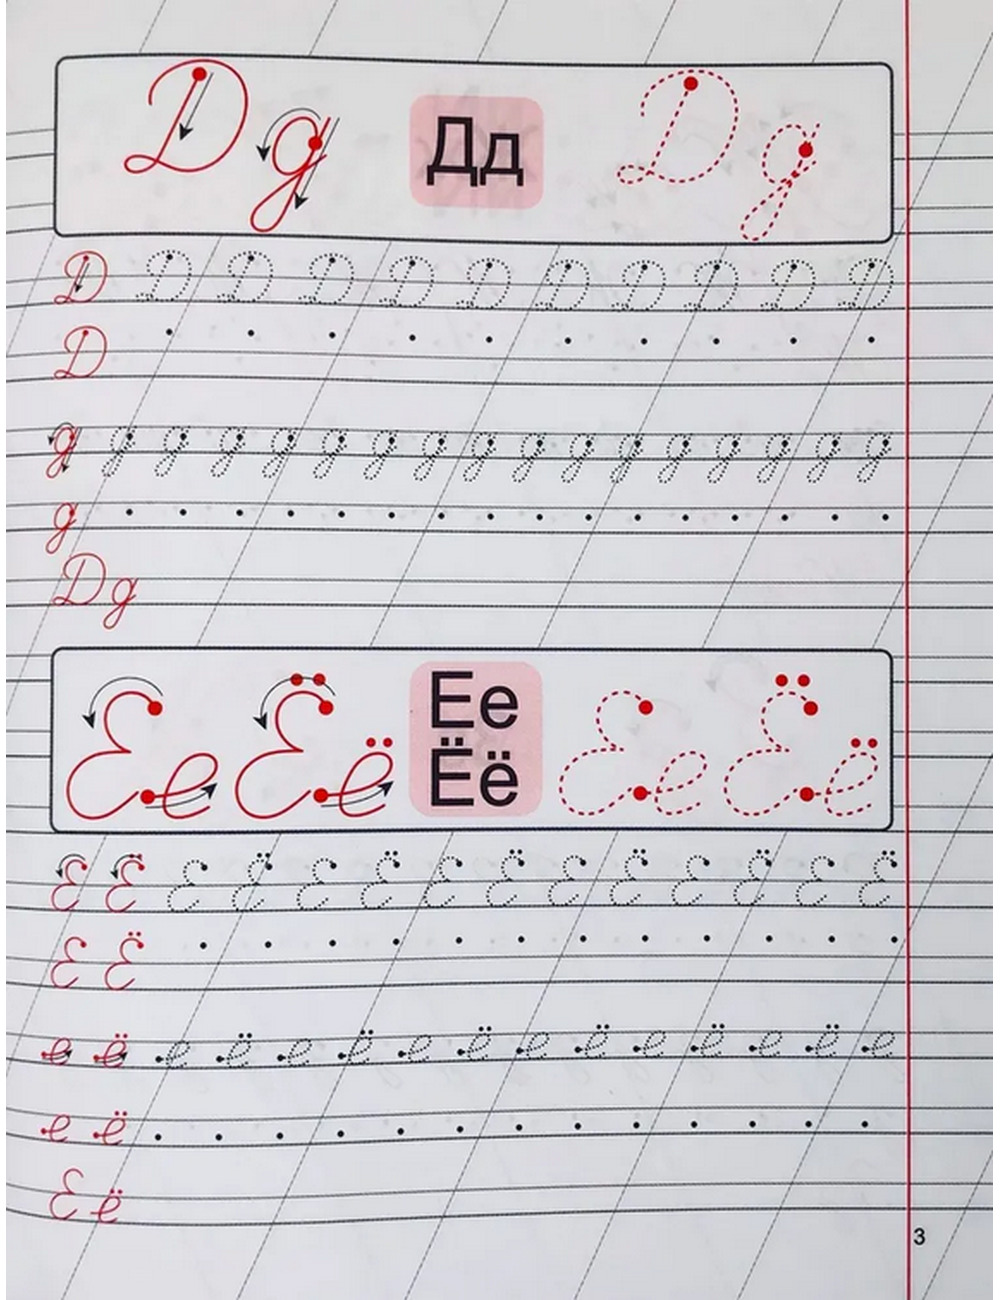 Д д Дд Д д
Д Д Д Д Д Д Д Д Д Д Д
Д
д д д д д д д д д д д д д д д д д
д
Д д
Е е Ё ё Ее Е е Ё ё
Ёё
Е Ё Е Ё Е Ё Е Ё Е Ё Е Ё Е Ё
Е Ё
е ё е ё е ё е ё е ё е ё е ё е
е ё
Е ё
3